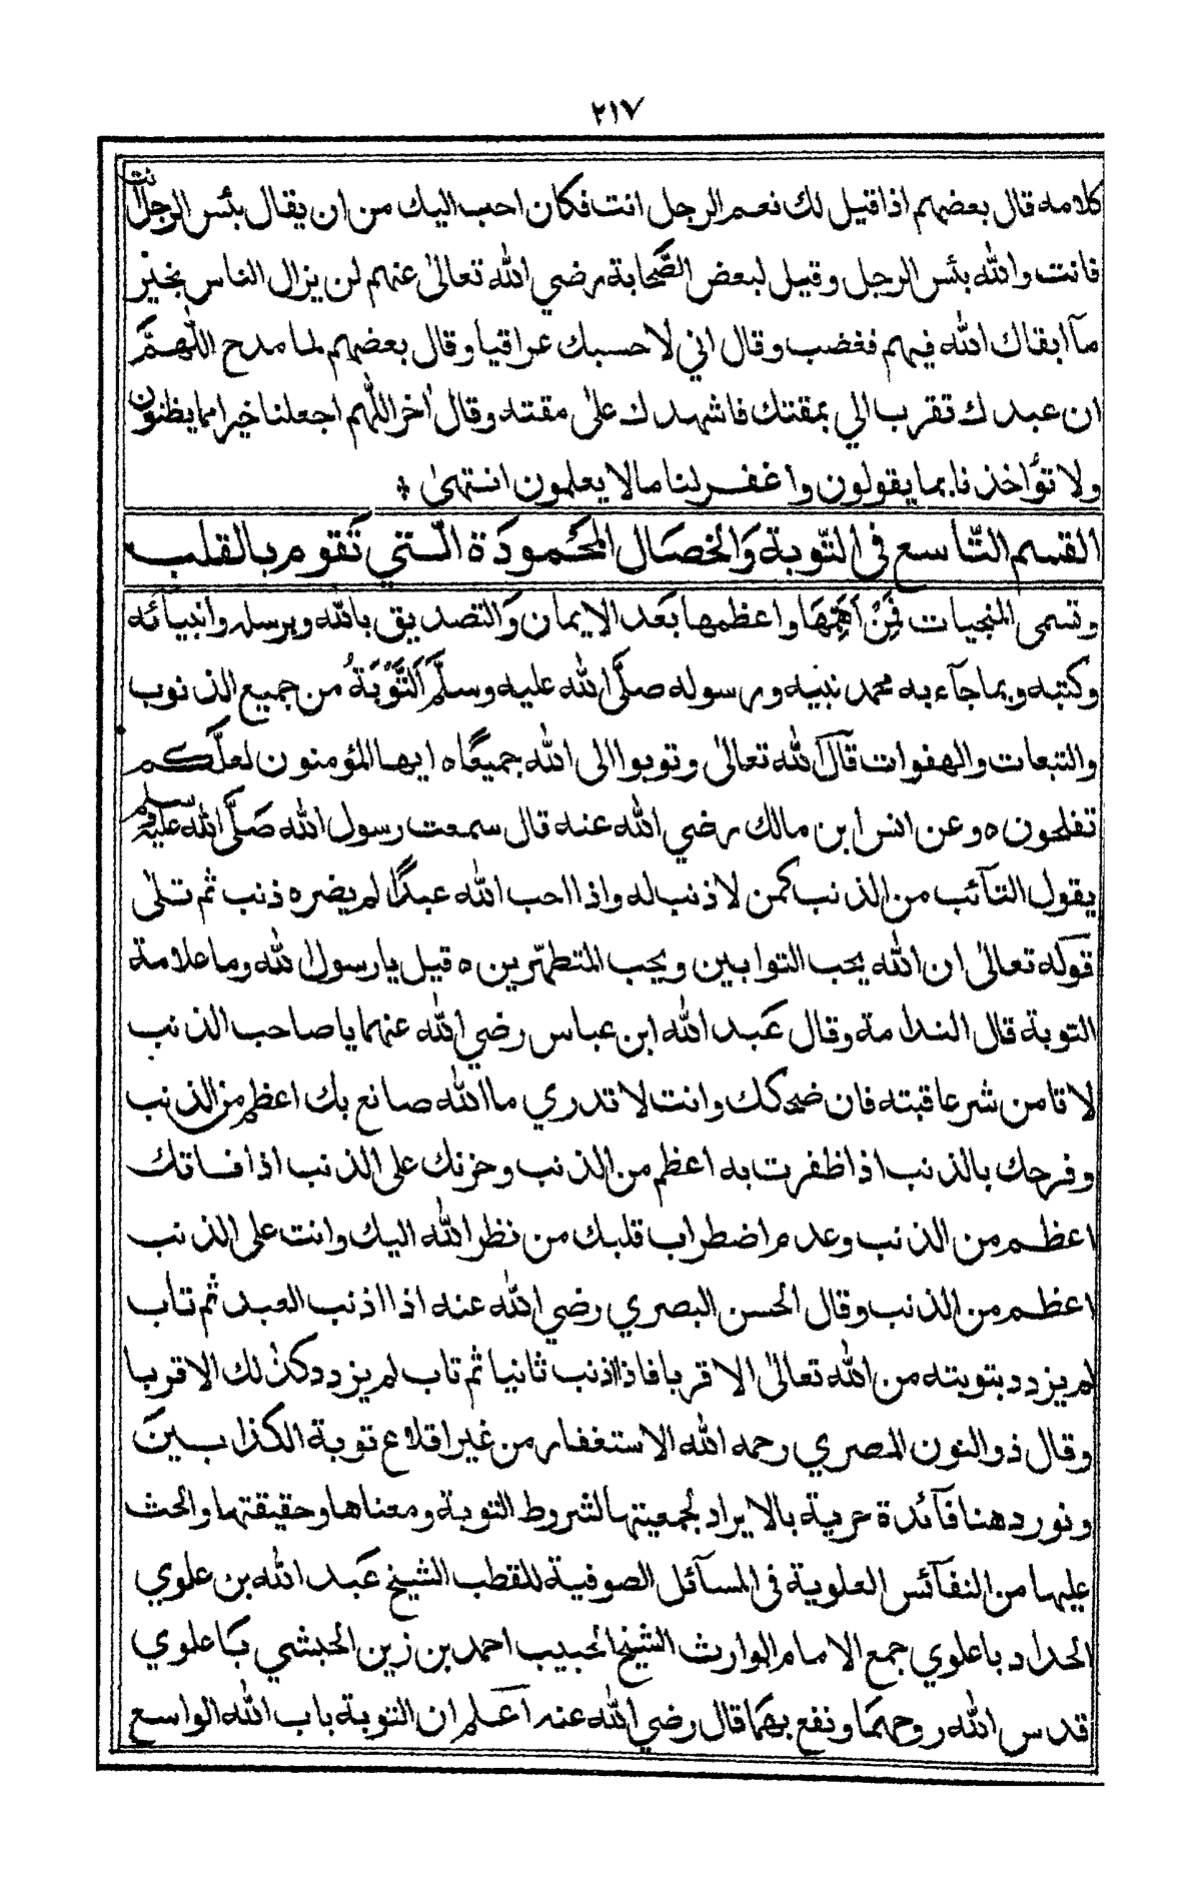 ٢١٧
كلامه قال بعضهم اذا قيل لك نعم الرجل انت فكان احب اليك من ان يقال بئس الرجل انت
فانت والله بئس الرجل وقيل لبعض الصَّحابة رضي الله تعالىٰ عنهم لن يزال الناس بخيْر
مآ ابقاك الله فيهم فغضب وقال اني لاحسبك عراقيا وقال بعضهم لما مدح اللّٰهمَّ
ان عبدك تقرب الي بمقتك فاشهدك علىٰ مقته وقال اٰخر اللّٰهم اجعلنا خيرا مما يظنون
ولا تؤاخذنا بما يقولون واغفر لنا ما لا يعلمون انتهىٰ ۞
القسم التّاسع في التّوبة وَالخصَال المحمُودَة الّتي تَقوم بالقلب
وتسمى المنجيات فَمِنْ اَهَمِّهَا واعظمها بَعد الايمان وَالتصديق بالله وبرسله وانبيائه
وكتبه وبما جآء به محمد نبيه ورسوله صلَّى الله عليه وسلَّم اَلتَّوْبَةُ من جميع الذنوب
والتبعات والهفوات قَالَ الله تعالىٰ وتوبوا الى الله جميعًا ه ايها المؤمنون لعلَّكم
تفلحون ه وعن انس ابن مالك رضي الله عنه قال سمعت رسول الله صَلَّى الله عليه وسلم
يقول التآئب من الذنب كمن لا ذنب له واذا احب الله عبدًا لم يضره ذنب ثم تلىٰ
قوله تعالىٰ ان الله يحب التوابين ويحب المتطهّرين ه قيل يا رسول الله وما علامة
التوبة قال الندامة وقال عَبد الله ابن عباس رضي الله عنهما يا صاحب الذنب
لا تامن شر عاقبته فان ضحكك وانت لا تدري ما الله صانع بك اعظم من الذنب
وفرحك بالذنب اذا ظفرت به اعظم من الذنب وحزنك على الذنب اذا فاتك
اعظم من الذنب وعدم اضطراب قلبك من نظر الله اليك وانت على الذنب
اعظم من الذنب وقال الحسن البصري رضي الله عنه اذا اذنب العبد ثم تاب
لم يزدد بتوبته من الله تعالىٰ الا قربا فاذا اذنب ثانيا ثم تاب لم يزدد كذٰلك الا قربا
وقال ذو النون المصري رحمه الله الاستغفار من غير اقلاع توبة الكذابين
ونورد هنا فآئدة حرية بالايراد لجمعيتها لشروط التوبة ومعناها وحقيقتها والحث
عليها من النفآئس العلوية في المسآئل الصوفية للقطب الشيخ عَبد الله بن علوي
الحداد باعلوي جمع الامام الوارث الشيخ الحبيب احمد بن زين الحبشي بَاعلوي
قدس الله روحهما ونفع بهما قال رضي الله عنه اَعلم ان التوبة باب الله الواسع